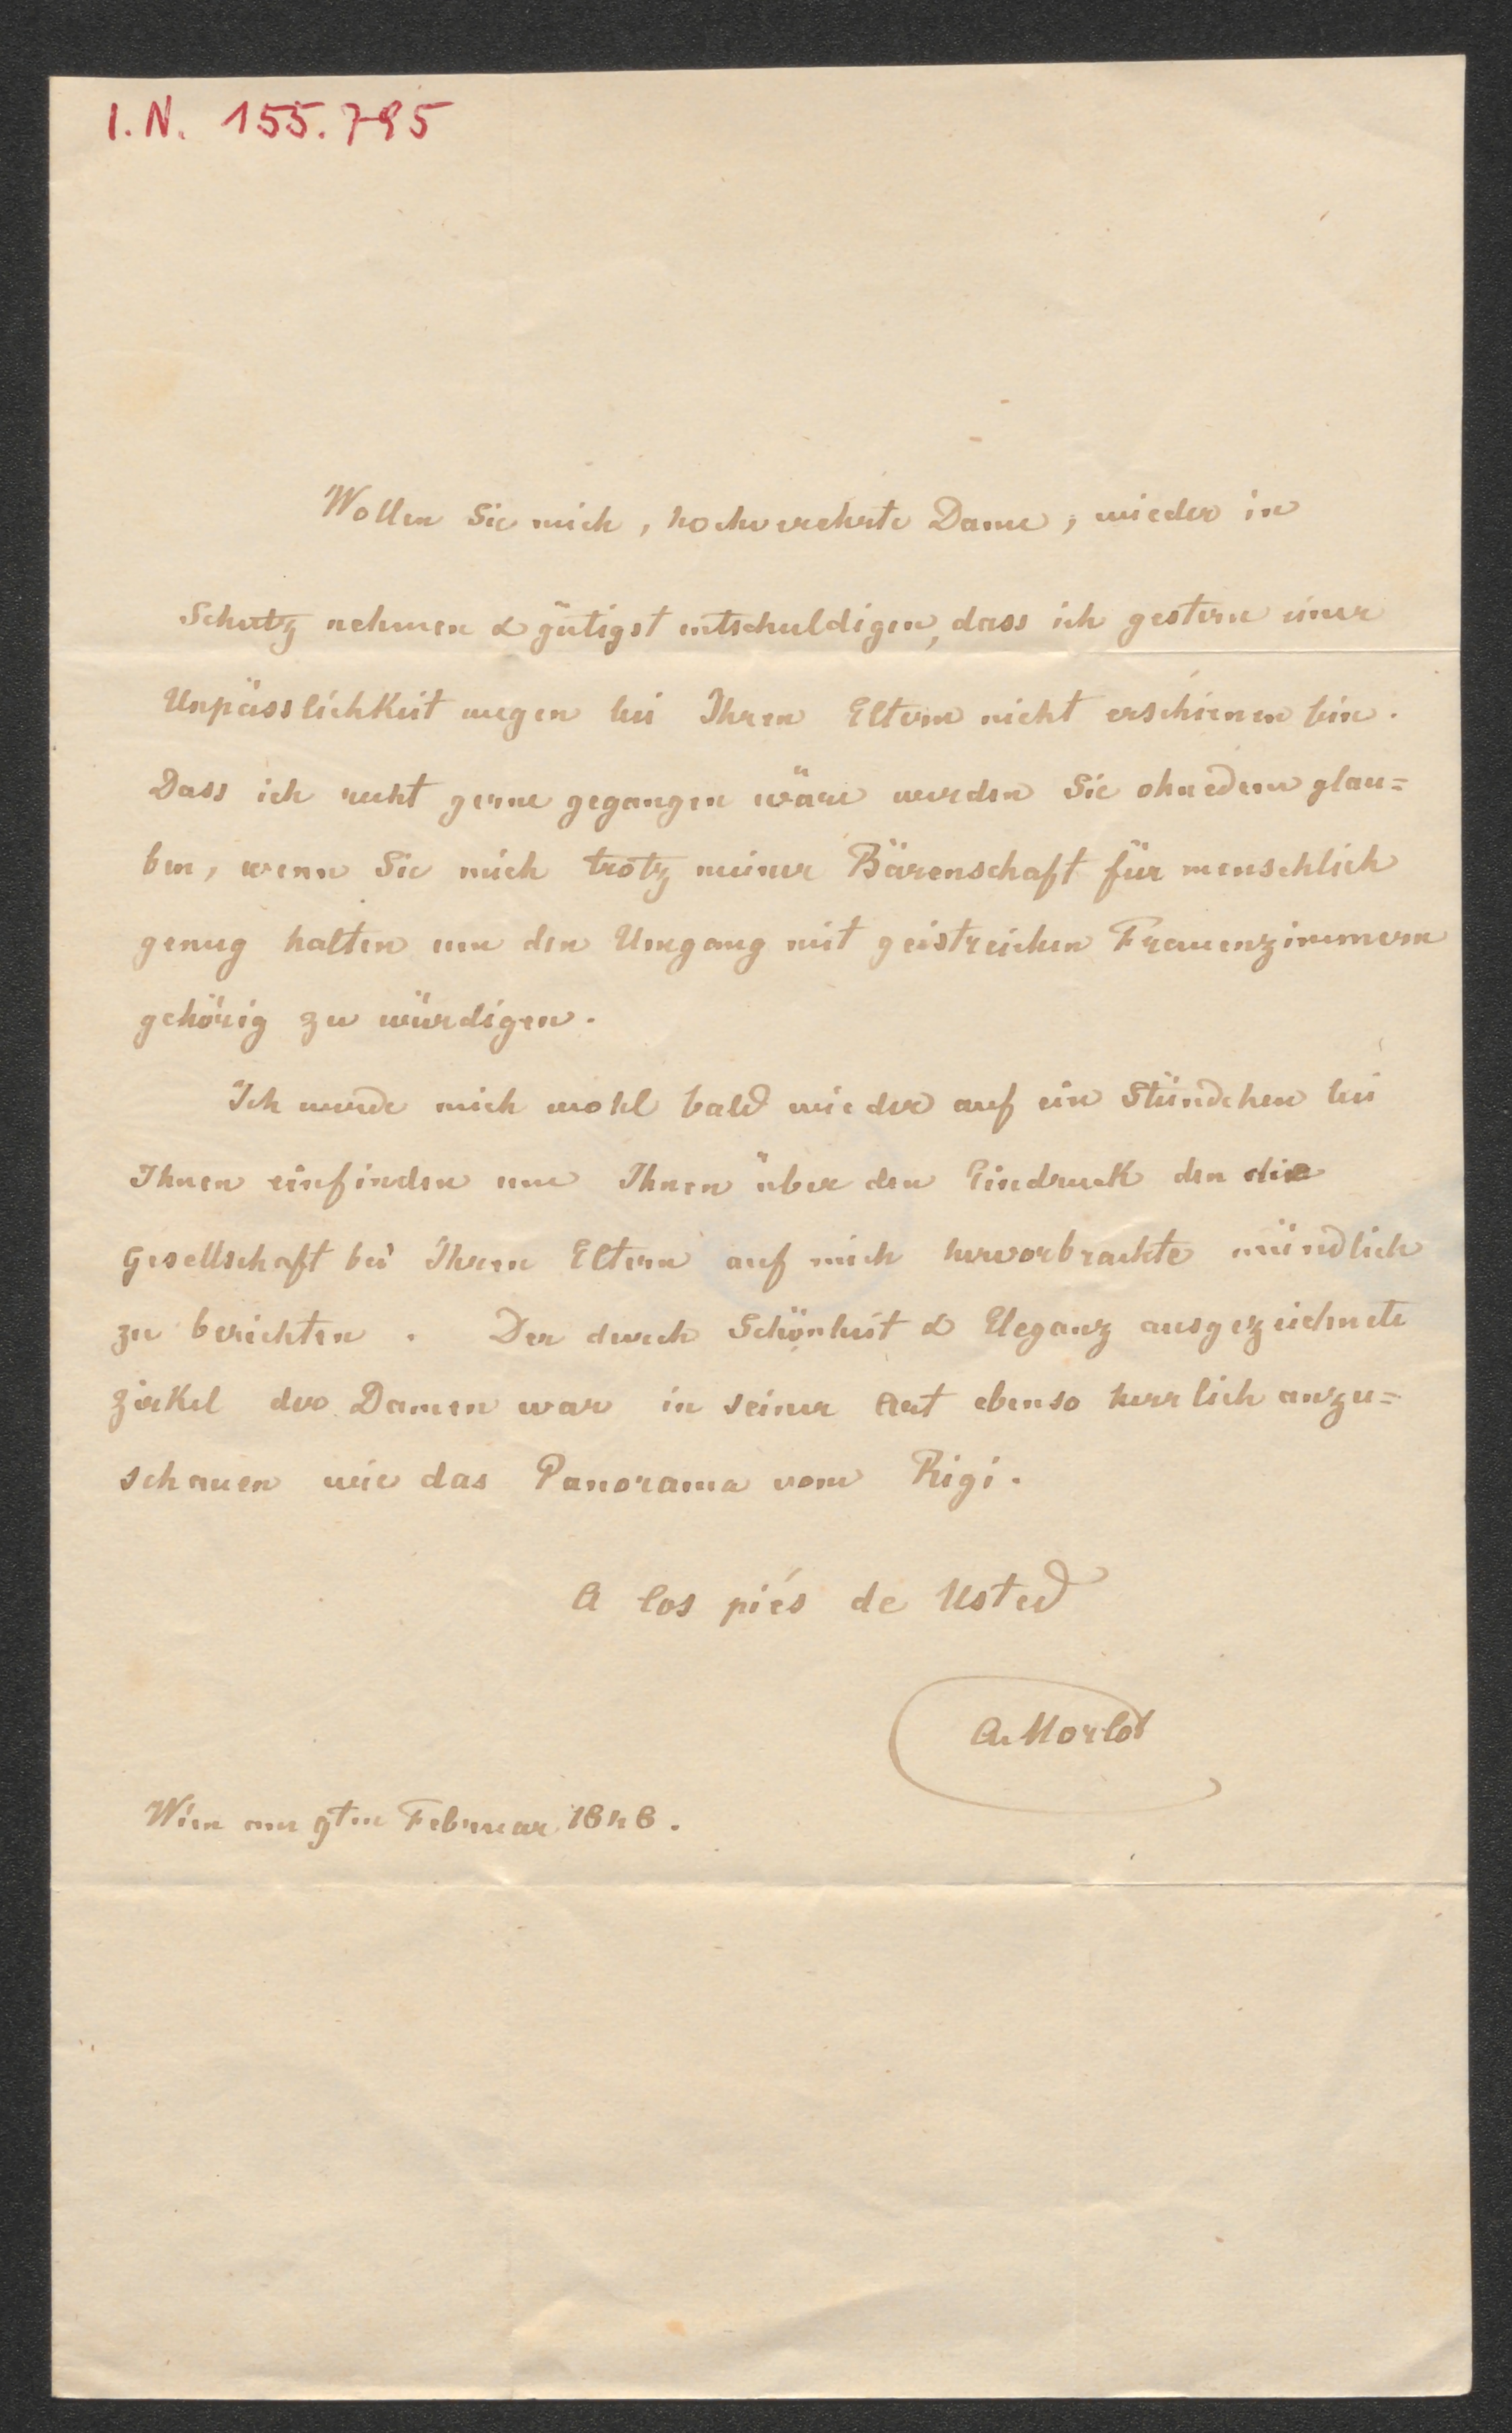 I.N. 155.795
Wollen Sie mich, hochverehrte Dame, wieder in
Schutz nehmen & gütigst entschuldigen, dass ich gestern einer
Unpässlichkeit wegen bei Ihren Eltern nicht erschienen bin.
Dass ich recht gerne gegangen wäre werden Sie ohnedem glau=
ben, wenn Sie mich trotz meiner Bärenschaft für menschlich
genug halten um den Umgang mit geistreichen Frauenzimmern
gehörig zu würdigen.
Ich werde mich wohl bald wieder auf ein Stündchen bei
Ihnen einfinden um Ihnen über den Eindruck den die
Gesellschaft bei Ihren Eltern auf mich hervorbrachte mündlich
zu berichten. Der durch Schönheit & Eleganz ausgezeichnete
Zirkel der Damen war in seiner Art ebenso herrlich anzu=
schauen wie das Panorama vom Rigi.
A los piés de Usted
A. Morlot
Wien am 9ten Februar 1848.